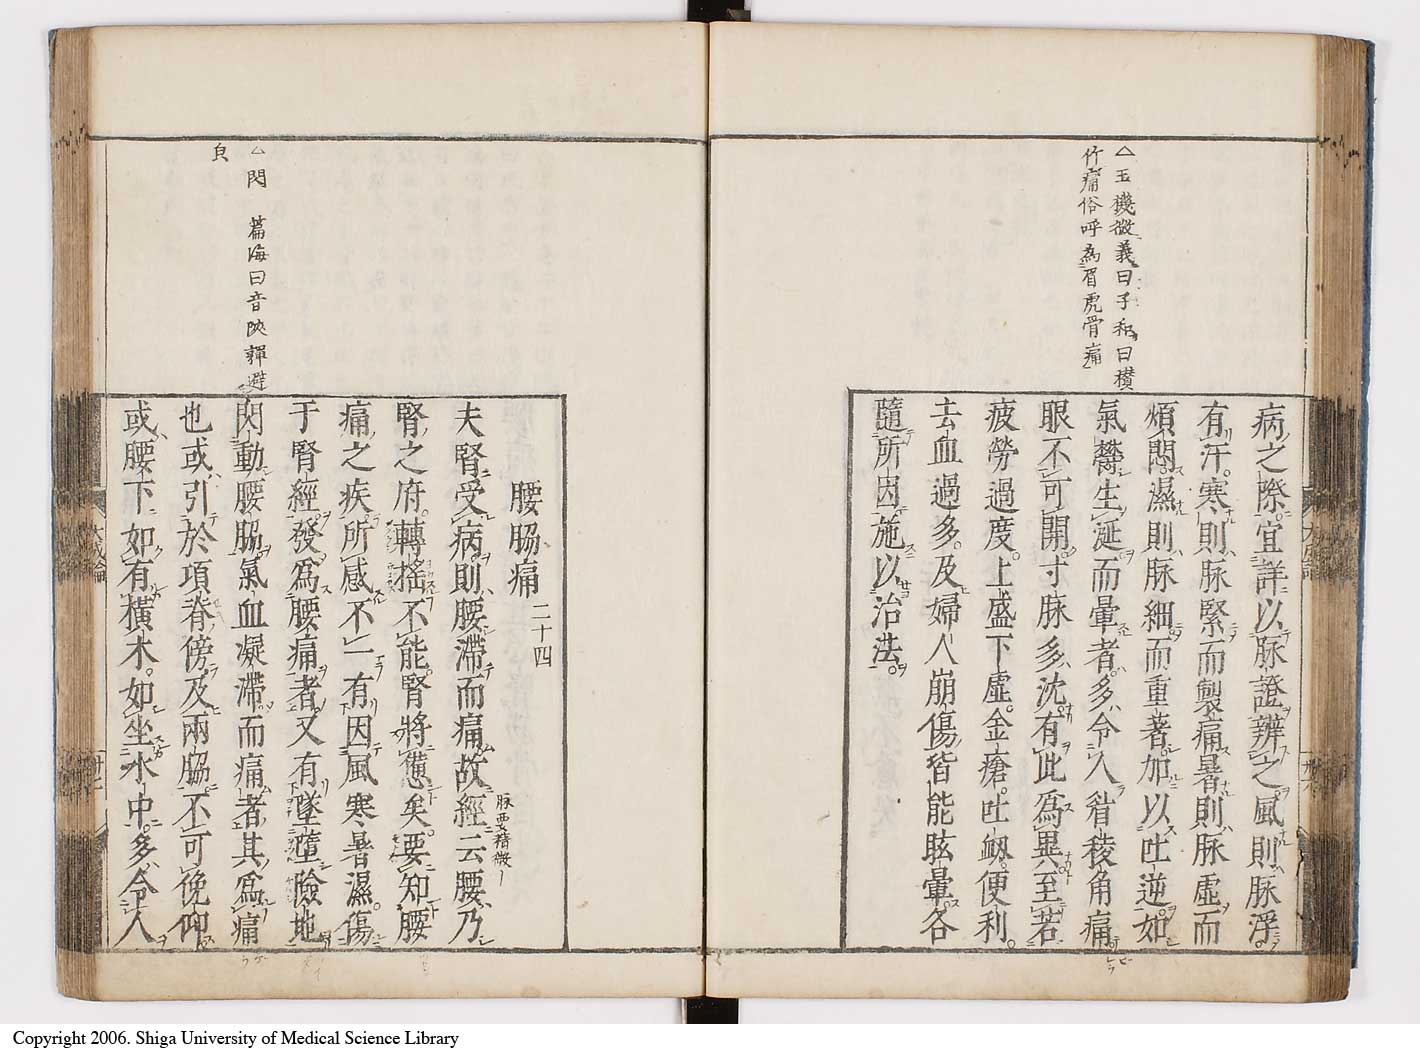 △玉機微義曰子和曰横
竹痛俗呼為眉虎骨痛
病之際宜詳以脉證辨之風則脉浮
有汗寒則脉緊而掣痛暑則脉虚而
煩悶濕則脉細而重著加以吐逆如
氣欝生涎而暈者多令人眥稜角痛
眼不可開寸脉多沈有此為異至若
疲勞過度上盛下虚金瘡吐衂便利
去血過多及婦人崩傷皆能眩暈各
隨所因施以治法
腰脇痛二十四
脉要精微
夫腎受病則腰滯而痛故經云腰乃
腎之府轉搖不能腎將憊矣要知腰
痛之疾所感不一有因風寒暑濕傷
于腎經發為腰痛者又有墜墮險地
閃動腰脇氣血凝滯而痛者其為痛
也或引於項脊傍及兩脇不可俛仰
或腰下如有横木如坐水中多令人
△閃 篇海曰音陝軃避
皃
大成論
Copyright 2006. Shiga University of Medical Science Library